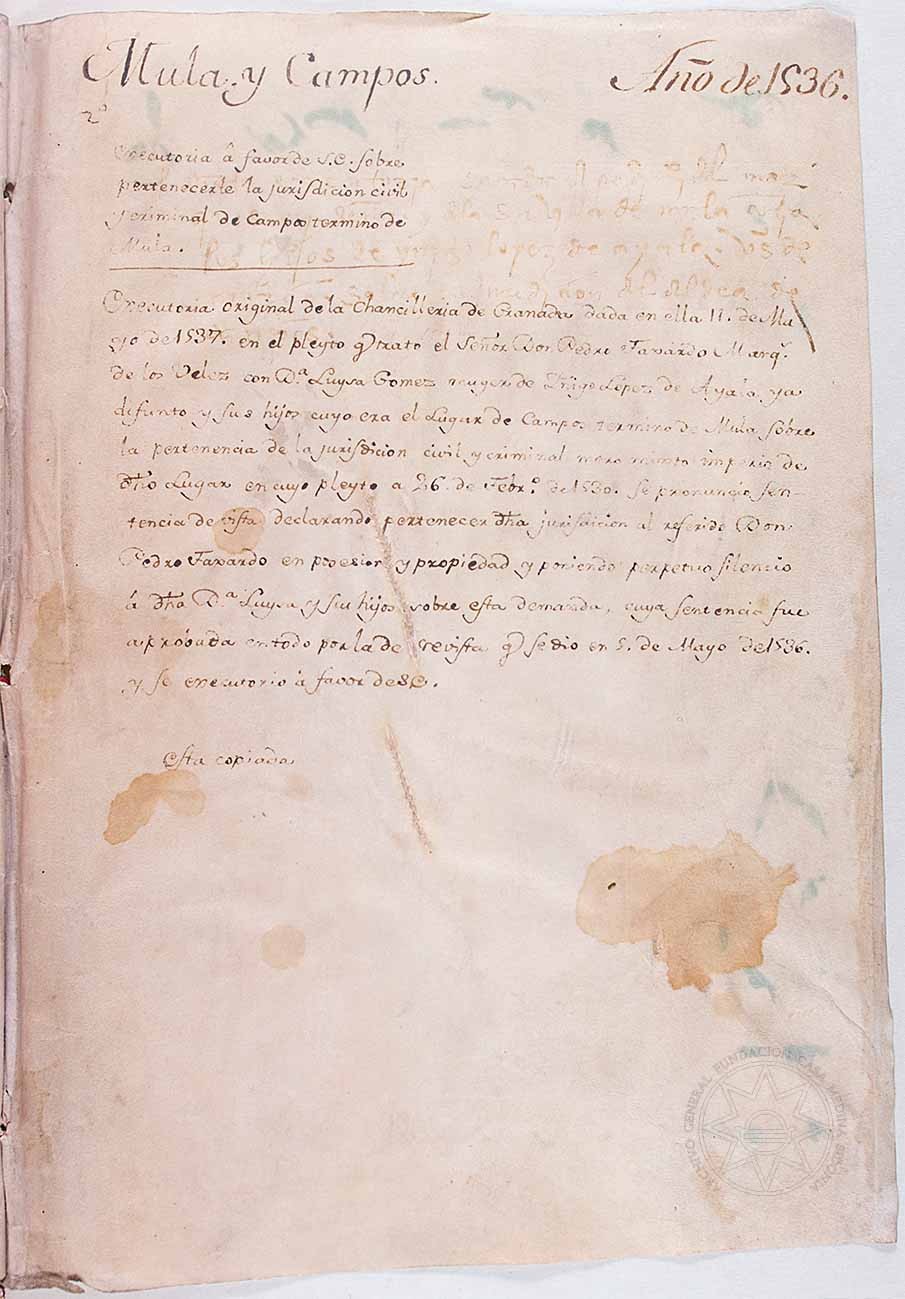 Mula. y Campos.
Año de 1536.
2º
Executoria â favor de S.E. sobre
pertenecerle la jurisdicion civil
y criminal de Campos termino de
Mula.
Executoria original de la Chancilleria de Granada dada en ella 11. de Ma
yo de 1537. en el pleyto q̃ trató el Señor Don Pedro Faxardo Marq.ˢ
de los Velez con D.ª Luysa Gomez muger de Yñigo Lopez de Ayala ya
difunto y sus hijos cuyo era el Lugar de Campos termino de Mula sobre
la pertenencia de la jurisdicion civil y criminal mero mixto imperio de
dh̃o Lugar en cuyo pleyto a 26. de Febr.º de 1530. se pronunció sen-
tencia de vista declarando pertenecer dh̃a jurisdicion al referido Don
Pedro Faxardo en posesion y propiedad y poniendo perpetuo silencio
á dh̃a D.ª Luysa y sus hijos sobre esta demanda, cuya sentencia fue
aprobada en todo por la de revista q̃ se dio en 5. de Mayo de 1536.
y se executorio á favor de S E.
Esta copiada
ARCHIVO GENERAL FUNDACION CASA MEDINA SIDONIA